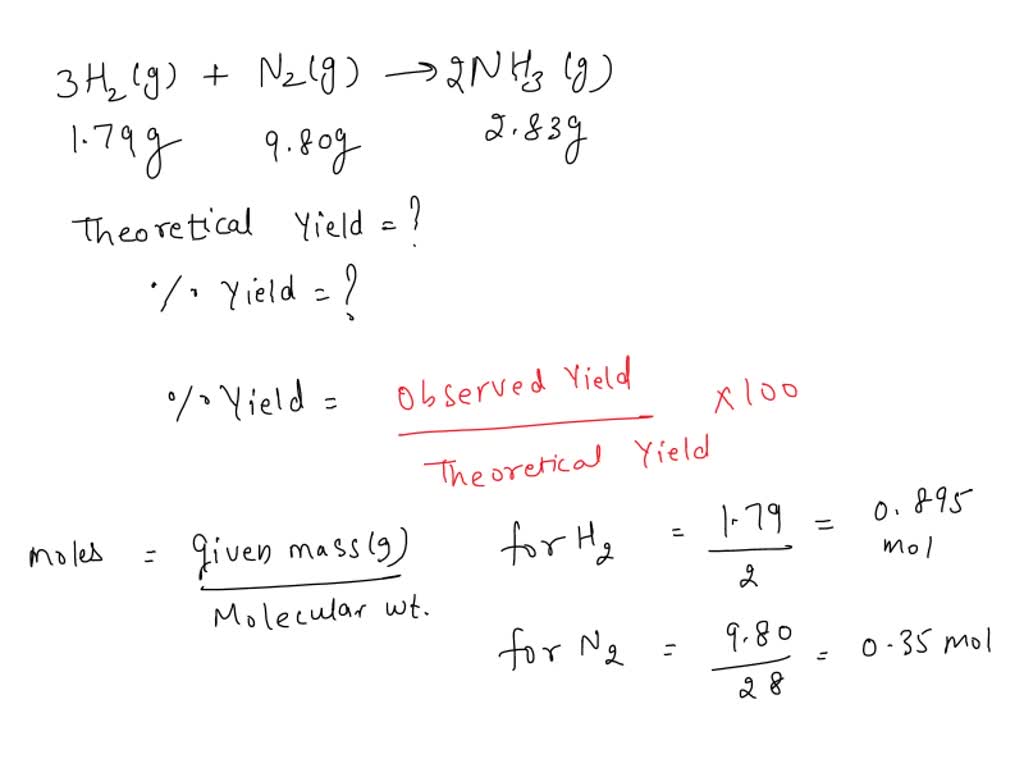 3H₂(g) + N₂(g) → 2NH₃(g)
1.79g 9.80g 2.83g
Theoretical Yield = ?
% Yield = ?
% Yield = Observed Yield / Theoretical Yield × 100
moles = given mass(g) / Molecular wt.
for H₂ = 1.79 / 2 = 0.895 mol
for N₂ = 9.80 / 28 = 0.35 mol